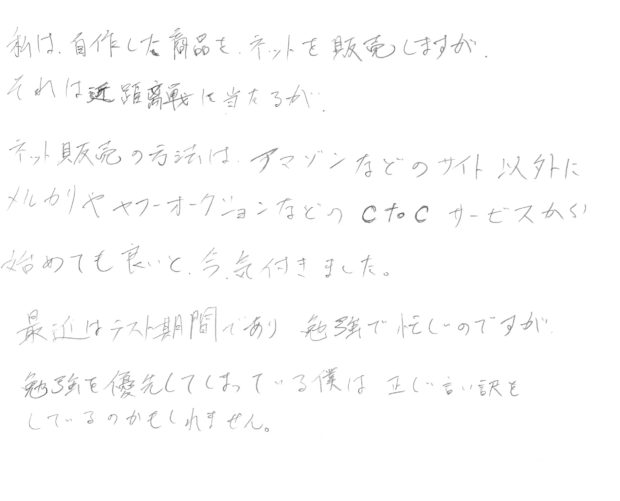 私は、自作した商品を、ネットを販売しますが、
それは近距離戦に当たるが、
ネット販売の方法は、アマゾンなどのサイト以外に
メルカリやヤフーオークションなどのCtoCサービスから
始めても良いと、今、気付きました。
最近はテスト期間であり勉強で忙しいのですが、
勉強を優先してしまっている僕は正しい言い訳を
しているのかもしれません。